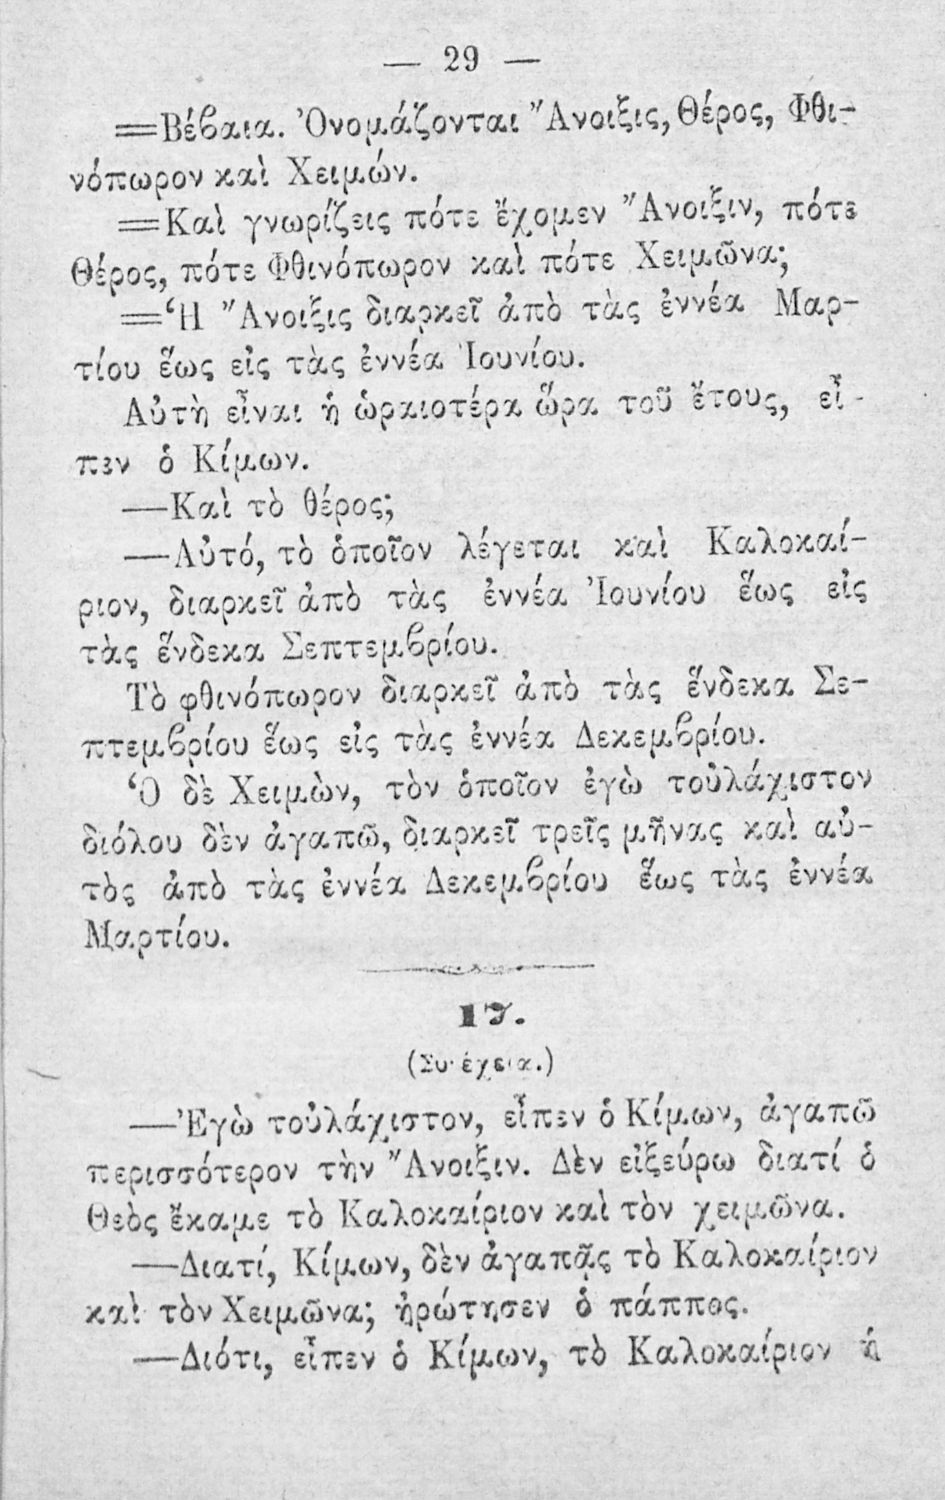 — 29 —
=Βέβαια. Ὀνομάζονται Ἄνοιξις, Θέρος, Φθι-
νόπωρον καὶ Χειμών.
=Καὶ γνωρίζεις πότε ἔχομεν Ἄνοιξιν, πότε
Θέρος, πότε Φθινόπωρον καὶ πότε Χειμῶνα;
=Ἡ Ἄνοιξις διαρκεῖ ἀπὸ τὰς ἐννέα Μαρ-
τίου ἕως εἰς τὰς ἐννέα Ἰουνίου.
Αὐτὴ εἶναι ἡ ὡραιοτέρα ὥρα τοῦ ἔτους, εἶ-
πεν ὁ Κίμων.
—Καὶ τὸ θέρος;
—Αὐτό, τὸ ὁποῖον λέγεται καὶ Καλοκαί-
ριον, διαρκεῖ ἀπὸ τὰς ἐννέα Ἰουνίου ἕως εἰς
τὰς ἕνδεκα Σεπτεμβρίου.
Τὸ φθινόπωρον διαρκεῖ ἀπὸ τὰς ἕνδεκα Σε-
πτεμβρίου ἕως εἰς τὰς ἐννέα Δεκεμβρίου.
Ὁ δὲ Χειμὼν, τὸν ὁποῖον ἐγὼ τοὐλάχιστον
διόλου δὲν ἀγαπῶ, διαρκεῖ τρεῖς μῆνας καὶ αὐ-
τὸς ἀπὸ τὰς ἐννέα Δεκεμβρίου ἕως τὰς ἐννέα
Μαρτίου.
17.
(Συνέχεια.)
—Ἐγὼ τοὐλάχιστον, εἶπεν ὁ Κίμων, ἀγαπῶ
περισσότερον τὴν Ἄνοιξιν. Δὲν εἰξεύρω διατί ὁ
Θεὸς ἔκαμε τὸ Καλοκαίριον καὶ τὸν χειμῶνα.
—Διατί, Κίμων, δὲν ἀγαπᾷς τὸ Καλοκαίριον
καὶ τὸν Χειμῶνα; ἠρώτησεν ὁ πάππος.
—Διότι, εἶπεν ὁ Κίμων, τὸ Καλοκαίριον ἡ